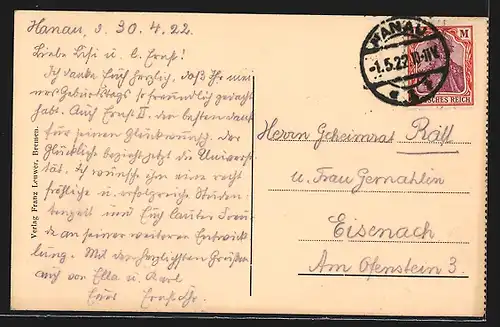 Hanau, d. 30.4.22.
Liebe Lisi u. l. Ernst!
Ich danke Euch herzlich, daß Ihr mei-
nes Geburtstags so freundlich gedacht
habt. Auch Ernst II. den besten dank
für seinen Glückwunsch. der
Glückliche bezieht jetzt die Universi-
tät. Ich wünsche ihm eine recht
fröhliche u. erfolgreiche Studen-
tenzeit und Euch lauter Freu-
de an seiner weiteren Entwick-
lung. Mit den herzlichsten Grüßen
auch von Ella u. Karl
Euer Ernst
Verlag Franz Leuwer, Bremen.
HANAU
-1.5.22.10-11V.
M
DEUTSCHES REICH
Herrn Geheimrat
u. Frau Gemahlin
Eisenach
Am Ofenstein 3.